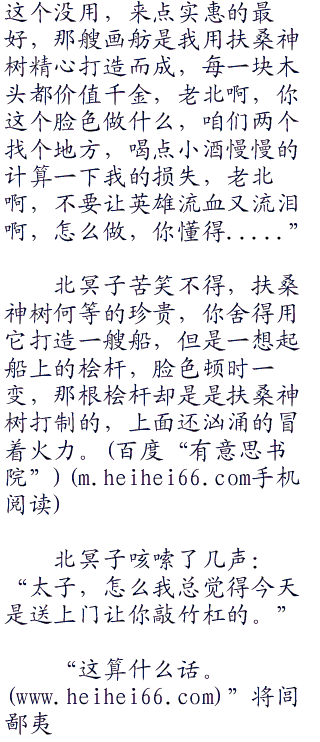 这个没用，来点实惠的最
好，那艘画舫是我用扶桑神
树精心打造而成，每一块木
头都价值千金，老北啊，你
这个脸色做什么，咱们两个
找个地方，喝点小酒慢慢的
计算一下我的损失，老北
啊，不要让英雄流血又流泪
啊，怎么做，你懂得.....”
北冥子苦笑不得，扶桑
神树何等的珍贵，你舍得用
它打造一艘船，但是一想起
船上的桧杆，脸色顿时一
变，那根桧杆却是是扶桑神
树打制的，上面还汹涌的冒
着火力。(百度“有意思书
院”)(m.heihei66.com手机
阅读)
北冥子咳嗦了几声：
“太子，怎么我总觉得今天
是送上门让你敲竹杠的。”
“这算什么话。
(www.heihei66.com)”将闾
鄙夷